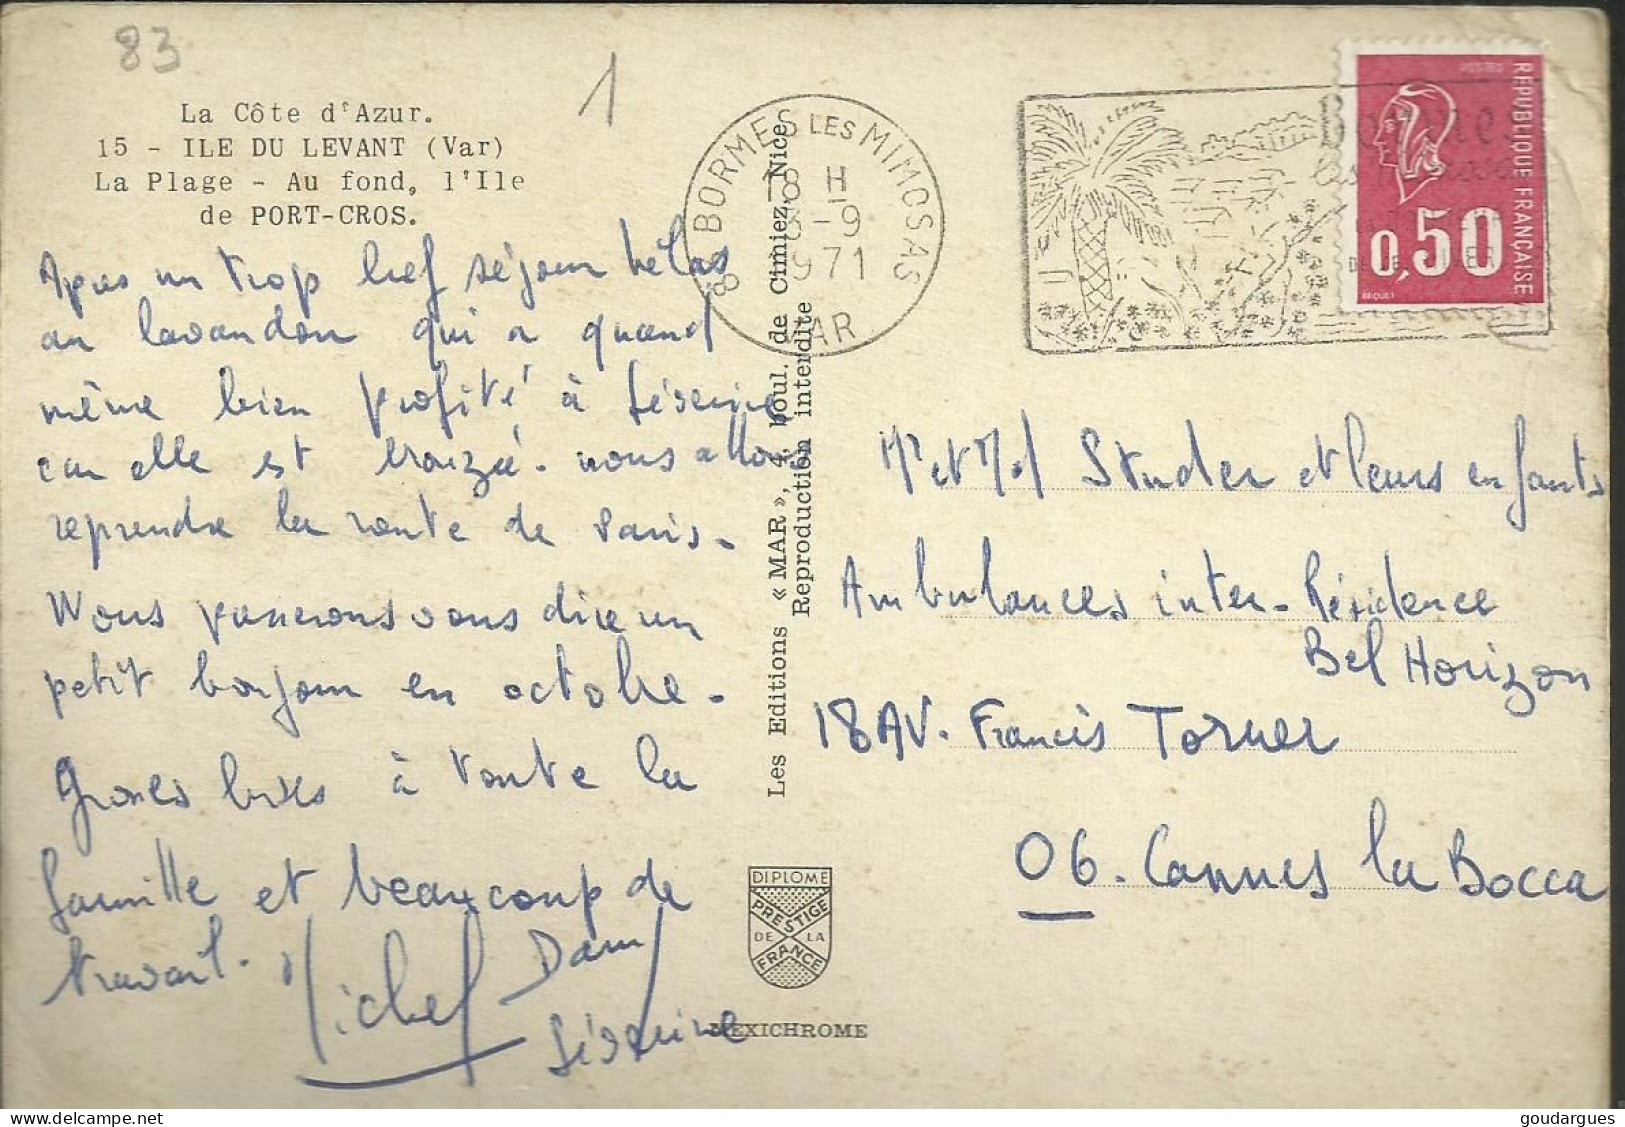 83
1
La Côte d'Azur.
15 - ILE DU LEVANT (Var)
La Plage - Au fond, l'Ile
de PORT-CROS.
Apres un trop bref séjour hélas
au lavandou qui a quand
même bien profité à Séverine
car elle est bronzée. nous allons
reprendre la route de Paris.
Nous passerons vous dire un
petit bonjour en octobre.
Grosses bises à toute la
famille et beaucoup de
travail. Michel Dany
Séverine
Les Editions « MAR », 4, boul. de Cimiez, Nice
Reproduction interdite
DIPLOME
PRESTIGE
DE LA
FRANCE
MEXICHROME
83 BORMES LES MIMOSAS
18 H
8-9
1971
VAR
Bormes
les Mimosas
POSTES
REPUBLIQUE FRANÇAISE
0,50
BEQUET
Mr et Md Studer et leurs enfants
Ambulances inter. Résidence
Bel Horizon
18 AV. Francis Torner
06. Cannes la Bocca
goudargues